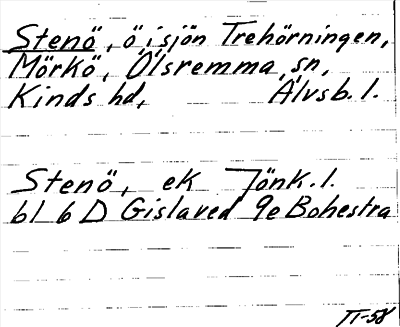 Stenö, ö i sjön Trehörningen,
Mörkö, Ölsremma sn,
Kinds hd, Älvsb. l.
Stenö, ek Jönk. l.
bl 6 D Gislaved 9e Bohestra
TT-58